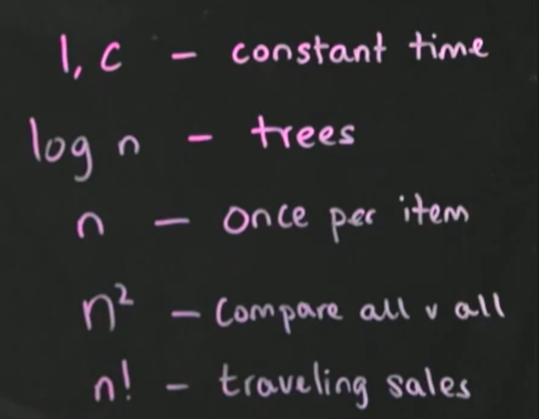 1, c - constant time
log n - trees
n - once per item
n² - Compare all v all
n! - traveling sales